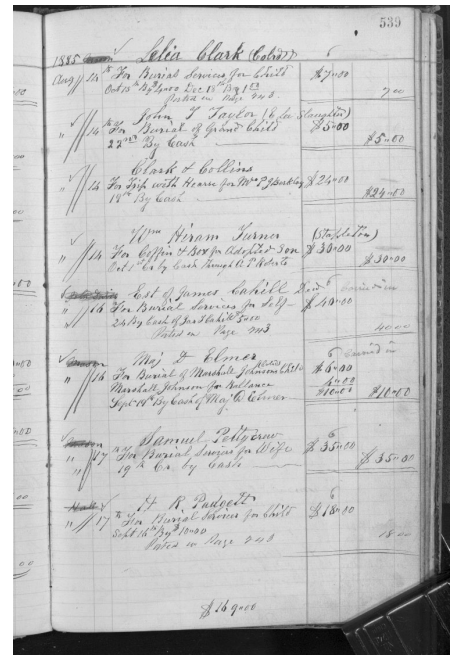 539
1885 Lelia Clark (Colrd) 6
Aug // 14 th For Burial Services for Child $7"00
Oct 13th By 4.00 Dec 18th By 1 00 7 00
Posted in Page 240
" // 14 th John T Taylor (Slaughter)
For Burial of Grand Child $5"00
22nd By Cash $5"00
Clark & Collins
" // 14 For Trip with Hearse for Mrs P J $24"00
18th By Cash $24"00
Wm Hiram Turner (Stapleton)
" // 14 For Coffin & Box for Adopted Son $30"00
Oct 1st Cr by Cash Through A P Roberts $30"00
Est of James Cahill Decd 6 carried in
" // 16 For Burial Services for Self $40"00
24 By Cash of Jas Cahill 5"00 40 00
Posted in Page 243
Maj D Elmer 6 carried in
" // 16 For Burial of Marshall Johnsons Child $6"00
Marshall Johnson for Ballance 4"00
Sept 14th By Cash of Maj D Elmer $10"00 $10"00
Samuel Pettgrew 6
" // 17 th For Burial Services for Wife $35"00
19th Cr by Cash $35"00
H R Padgett 6
" // 17 th For Burial Services for Child $18"00
Sept 16th By 10"00 18 00
Posted in Page 240
$169"00